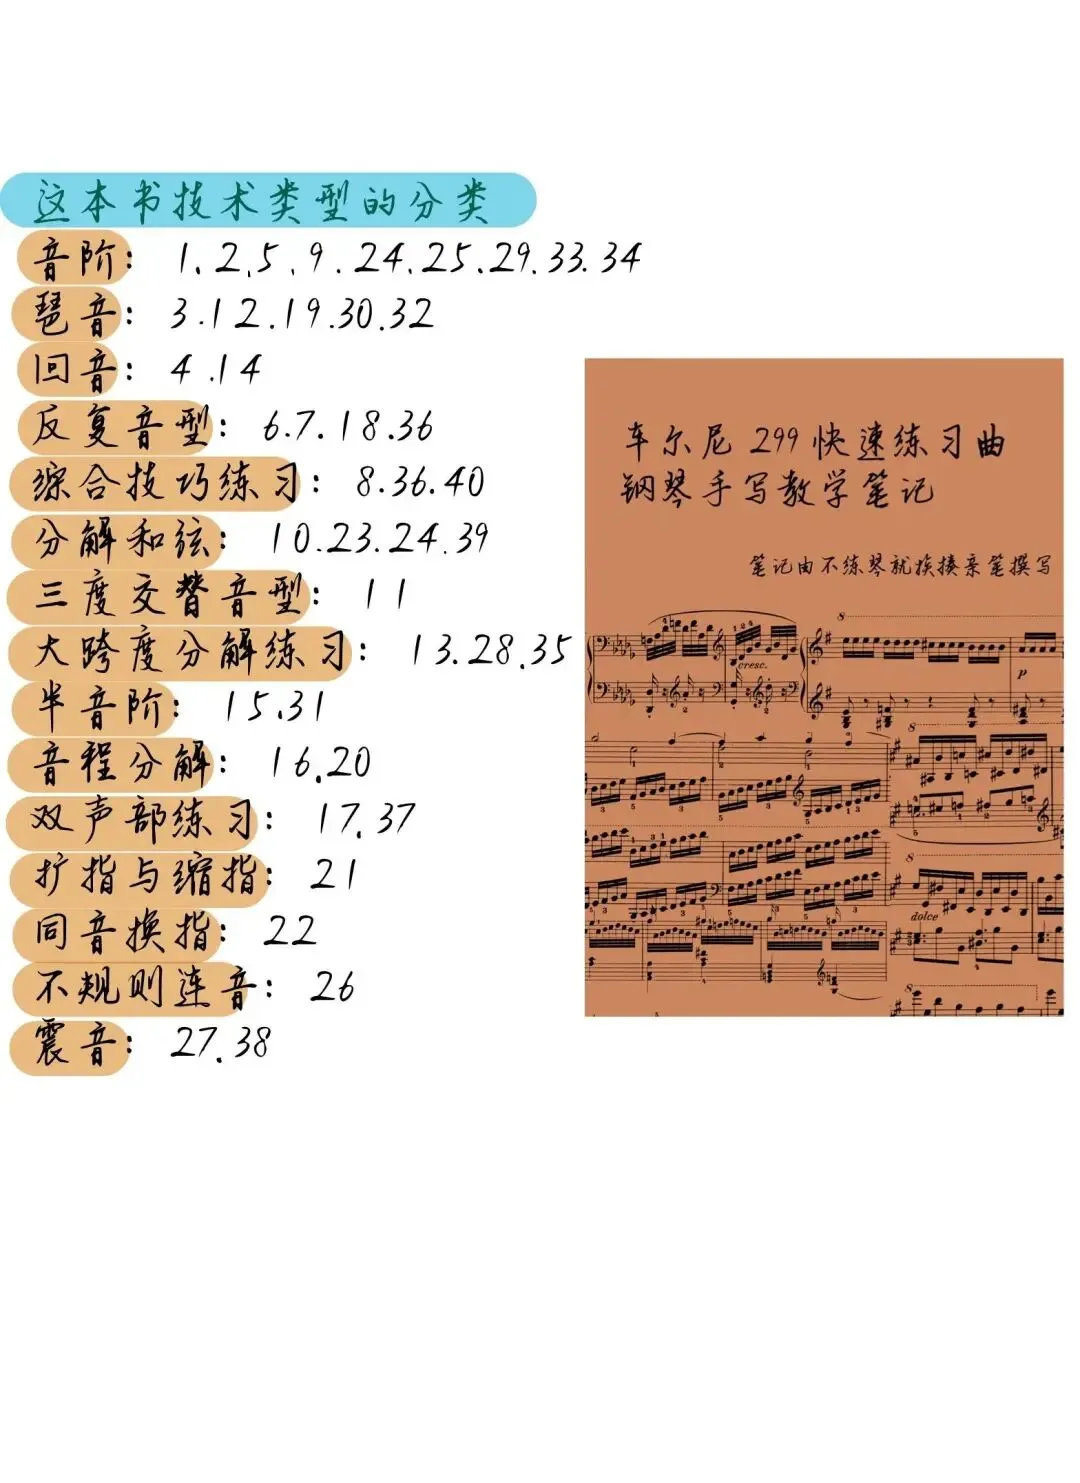 这本书技术类型的分类
音阶: 1、2、5、9.24.25.29.33.34
琶音: 3.12.19.30.32
回音: 4.14
反复音型: 6.7.18.36
综合技巧练习: 8.36.40
分解和弦: 10.23.24.39
三度交替音型: 11
大跨度分解练习: 13.28.35
半音阶: 15.31
音程分解: 16.20
双声部练习: 17.37
扩指与缩指: 21
同音换指: 22
不规则连音: 26
震音: 27.38
车尔尼 299 快速练习曲
钢琴手写教学笔记
笔记由不练琴就挨揍亲笔撰写
cresc.
p
dolce